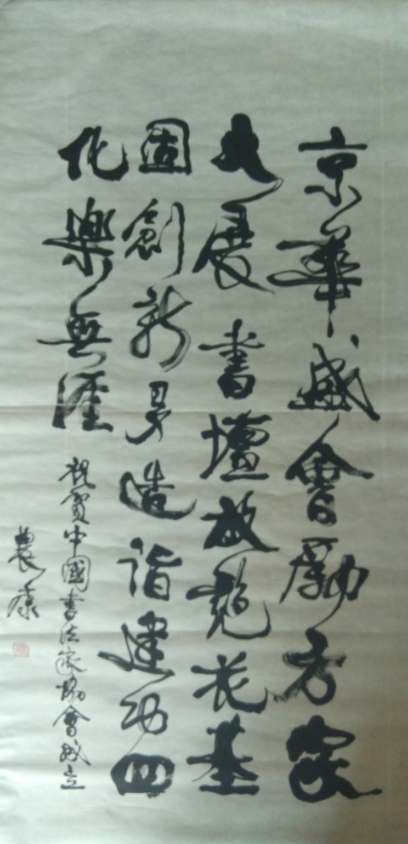 京華盛會勵方家
大展書壇放艷花基
固創新易造詣建功四
化樂無涯
祝賀中國書法家協會成立
農康